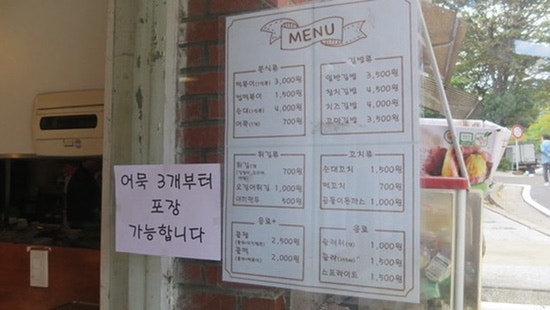 MENU
분식류
떡볶이(1인분) 3,000원
컵떡볶이 1,500원
순대(1인분) 4,000원
어묵(1개) 700원
김밥류
일반김밥 3,500원
참치김밥 4,500원
치즈김밥 4,000원
꼬마김밥 3,500원
튀김류
튀김(1개) 700원
오징어튀김 1,000원
야끼만두 500원
꼬치류
순대꼬치 1,500원
떡꼬치 700원
피카츄돈까스 1,000원
음료+
콜팝 2,500원
콜떡 2,000원
음료
슬러시 1,000원
콜라 1,500원
스프라이트 1,500원
어묵 3개부터
포장
가능합니다